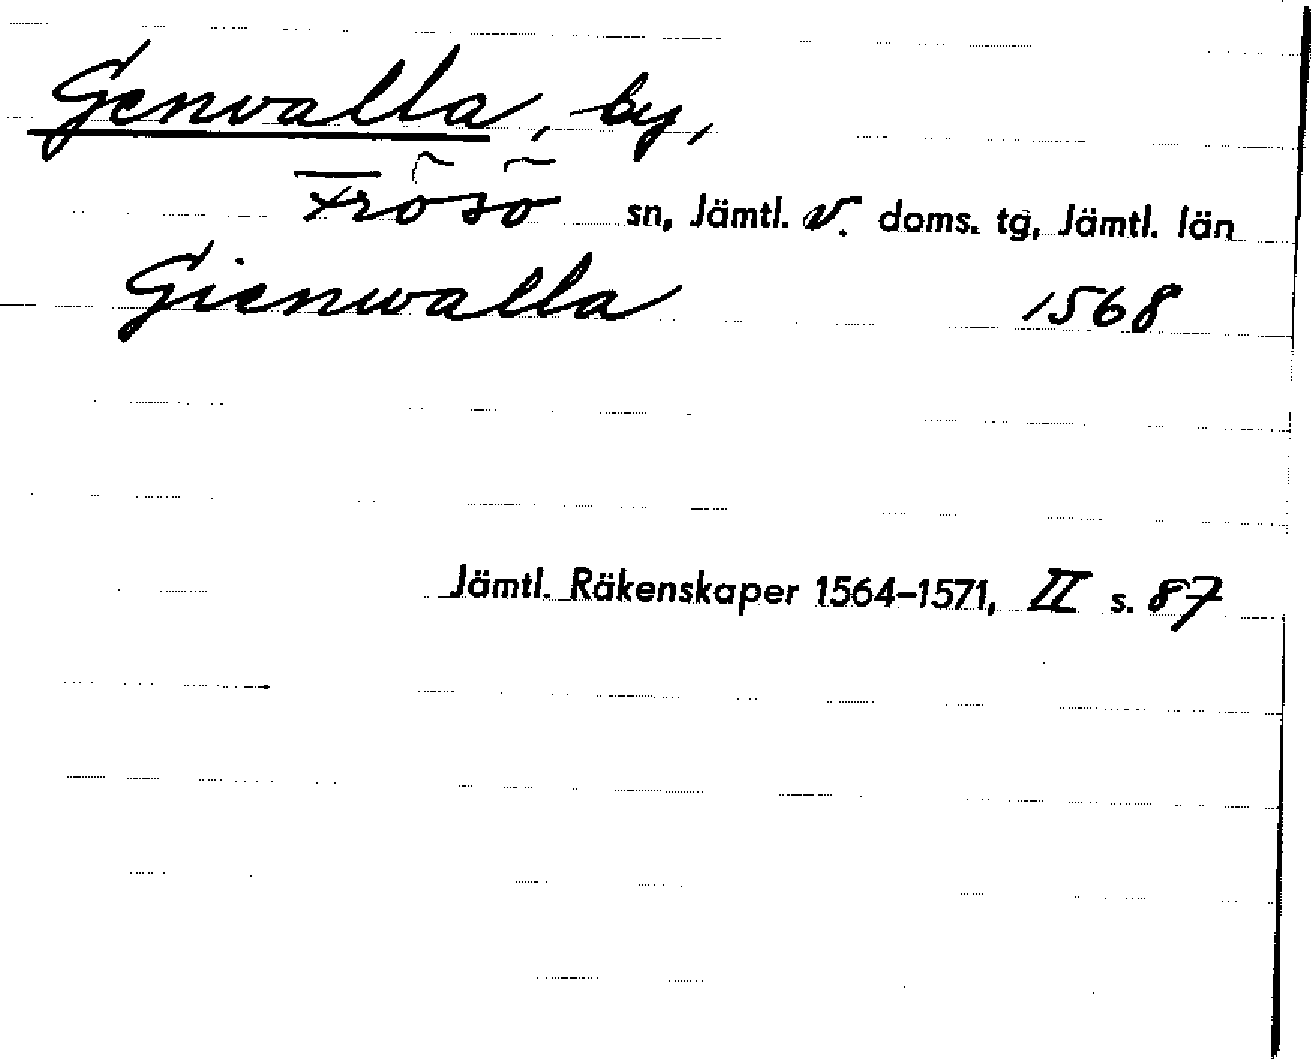 Genvalla, by,
Frösö sn, Jämtl. v. doms. tg, Jämtl. län
Gienwalla 1568
Jämtl. Räkenskaper 1564–1571, II s. 87